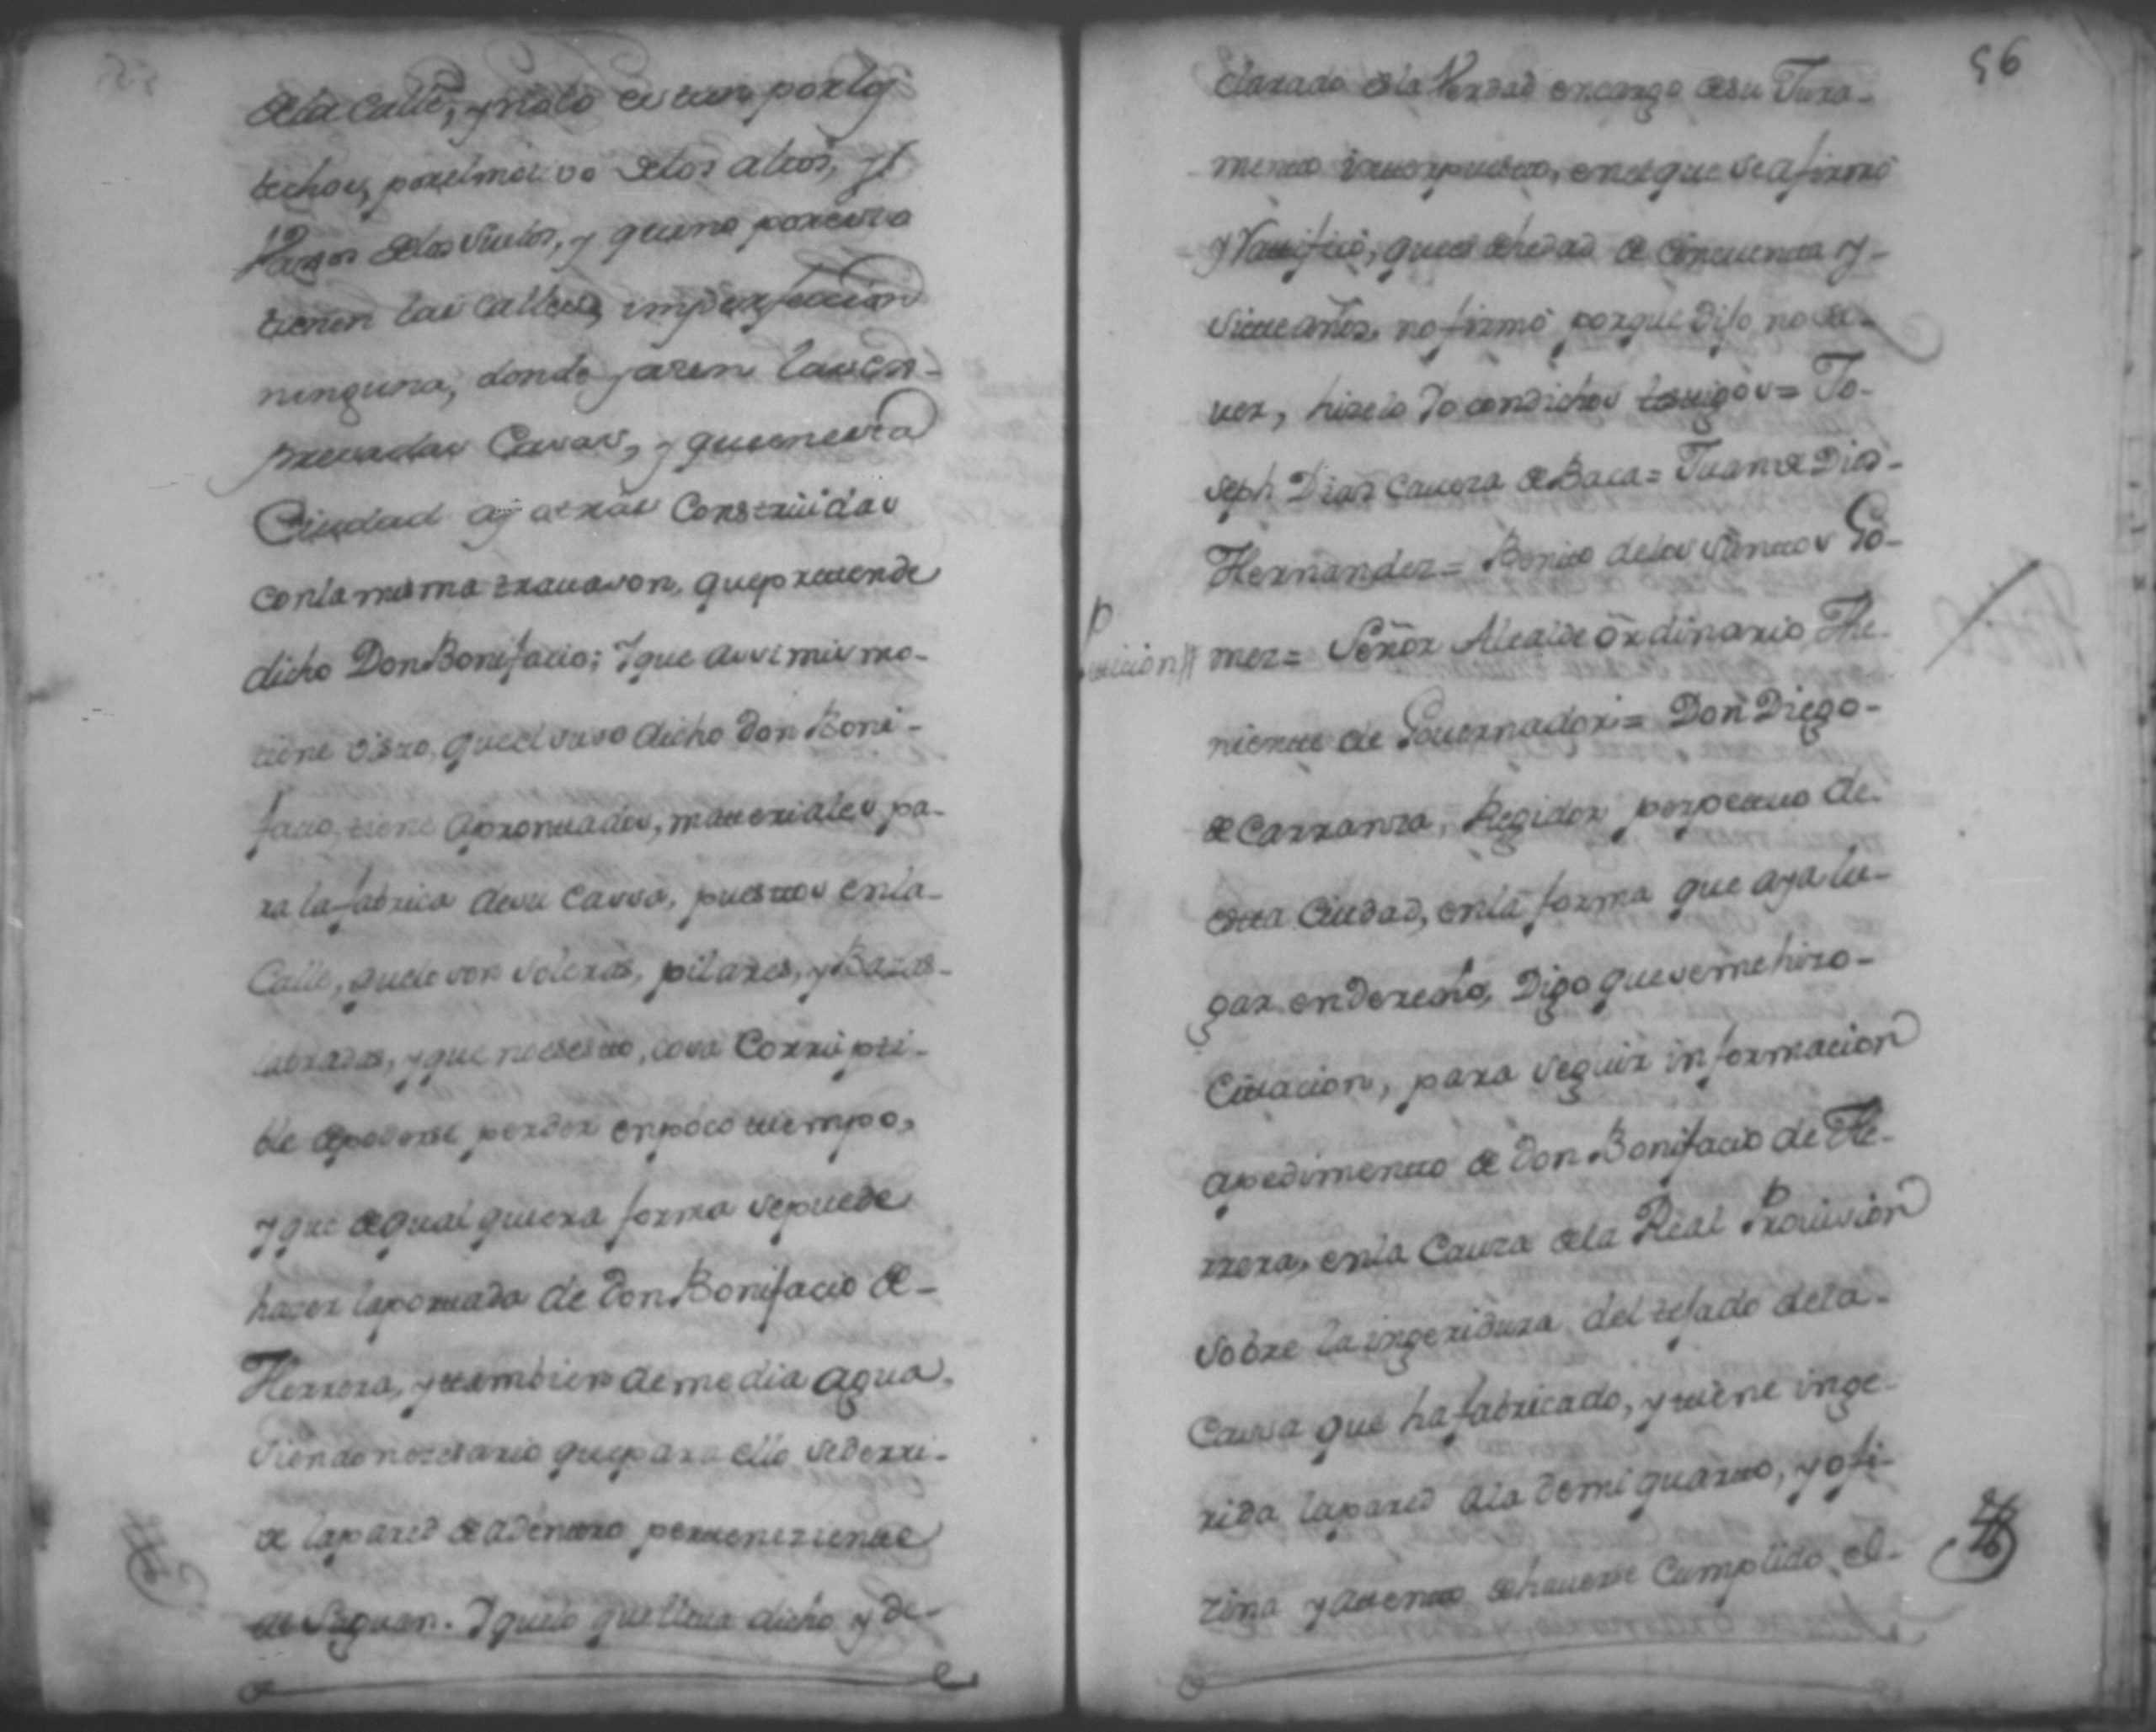 dela Calle, y no lo estan por los
techos, por el motivo delos altos, y
vajos delos suelos, y que no por esso
tienen las Calles, imperfeccion
ninguna, donde yasen las ex-
presadas Casas, y que en esta
Ciudad ay otras Construidas
con la misma travason, que pretende
dicho Don Bonifacio; Y que assi mismo
tiene visto, que el suso dicho Don Boni-
facio, tiene aprontados, materiales pa-
ra la fabrica de su Cassa, puestos en la
Calle, que lo son soleras, pilares, y Bazas
labradas, y que no es esto, cosa Corrupti-
ble de poderse perder en poco tiempo,
y que de qual quiera forma se puede
hazer la portada de Don Bonifacio de-
Herrera, y tambien de media agua,
siendo nezesario que para ello se derri-
de la pared de adentro perteneziente
de Saguan. Y que lo que lleva dicho y de-
56
clarado es la Verdad en cargo de su Jura-
mento interpuesto, en el que se afirmó
y Ratificó, que es de hedad de Cincuenta y
siete años, no firmó porque dijo no sa-
ver, hizelo Yo con dichos testigos = Jo-
seph Dias Caveza de Baca = Juan de Dios-
Hernandez = Benito delos Santos Go-
mez = Señor Alcalde ordinario The-
niente de Governador = Don Diego-
de Carranza, Regidor perpetuo de
esta Ciudad, en la forma que aya lu-
gar en derecho, Digo que se me hizo-
Citacion, para seguir informacion
a pedimento de Don Bonifacio de He-
rrera, en la Causa dela Real Provision
sobre la ingeridura del tejado dela-
Cassa que ha fabricado, y tiene inge-
rida la pared ala de mi quarto, y ofi-
zina y atento de haverse Cumplido el-